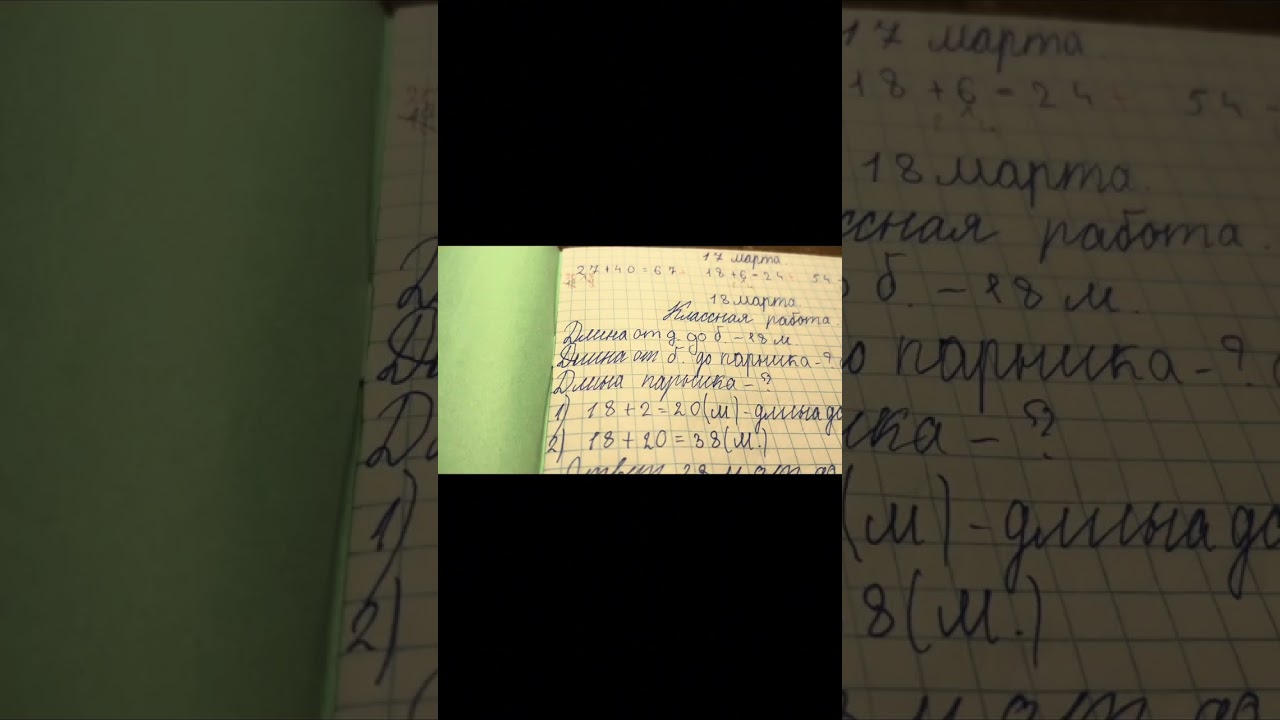 17 марта
27+40=67 18+6=24 54-
18 марта.
Классная работа.
Длина от д. до б. - 18 м.
Длина от б. до парника - ?
Длина парника - ?
1) 18+2=20(м) - длина до
2) 18+20=38(м.)
Ответ 38 м от